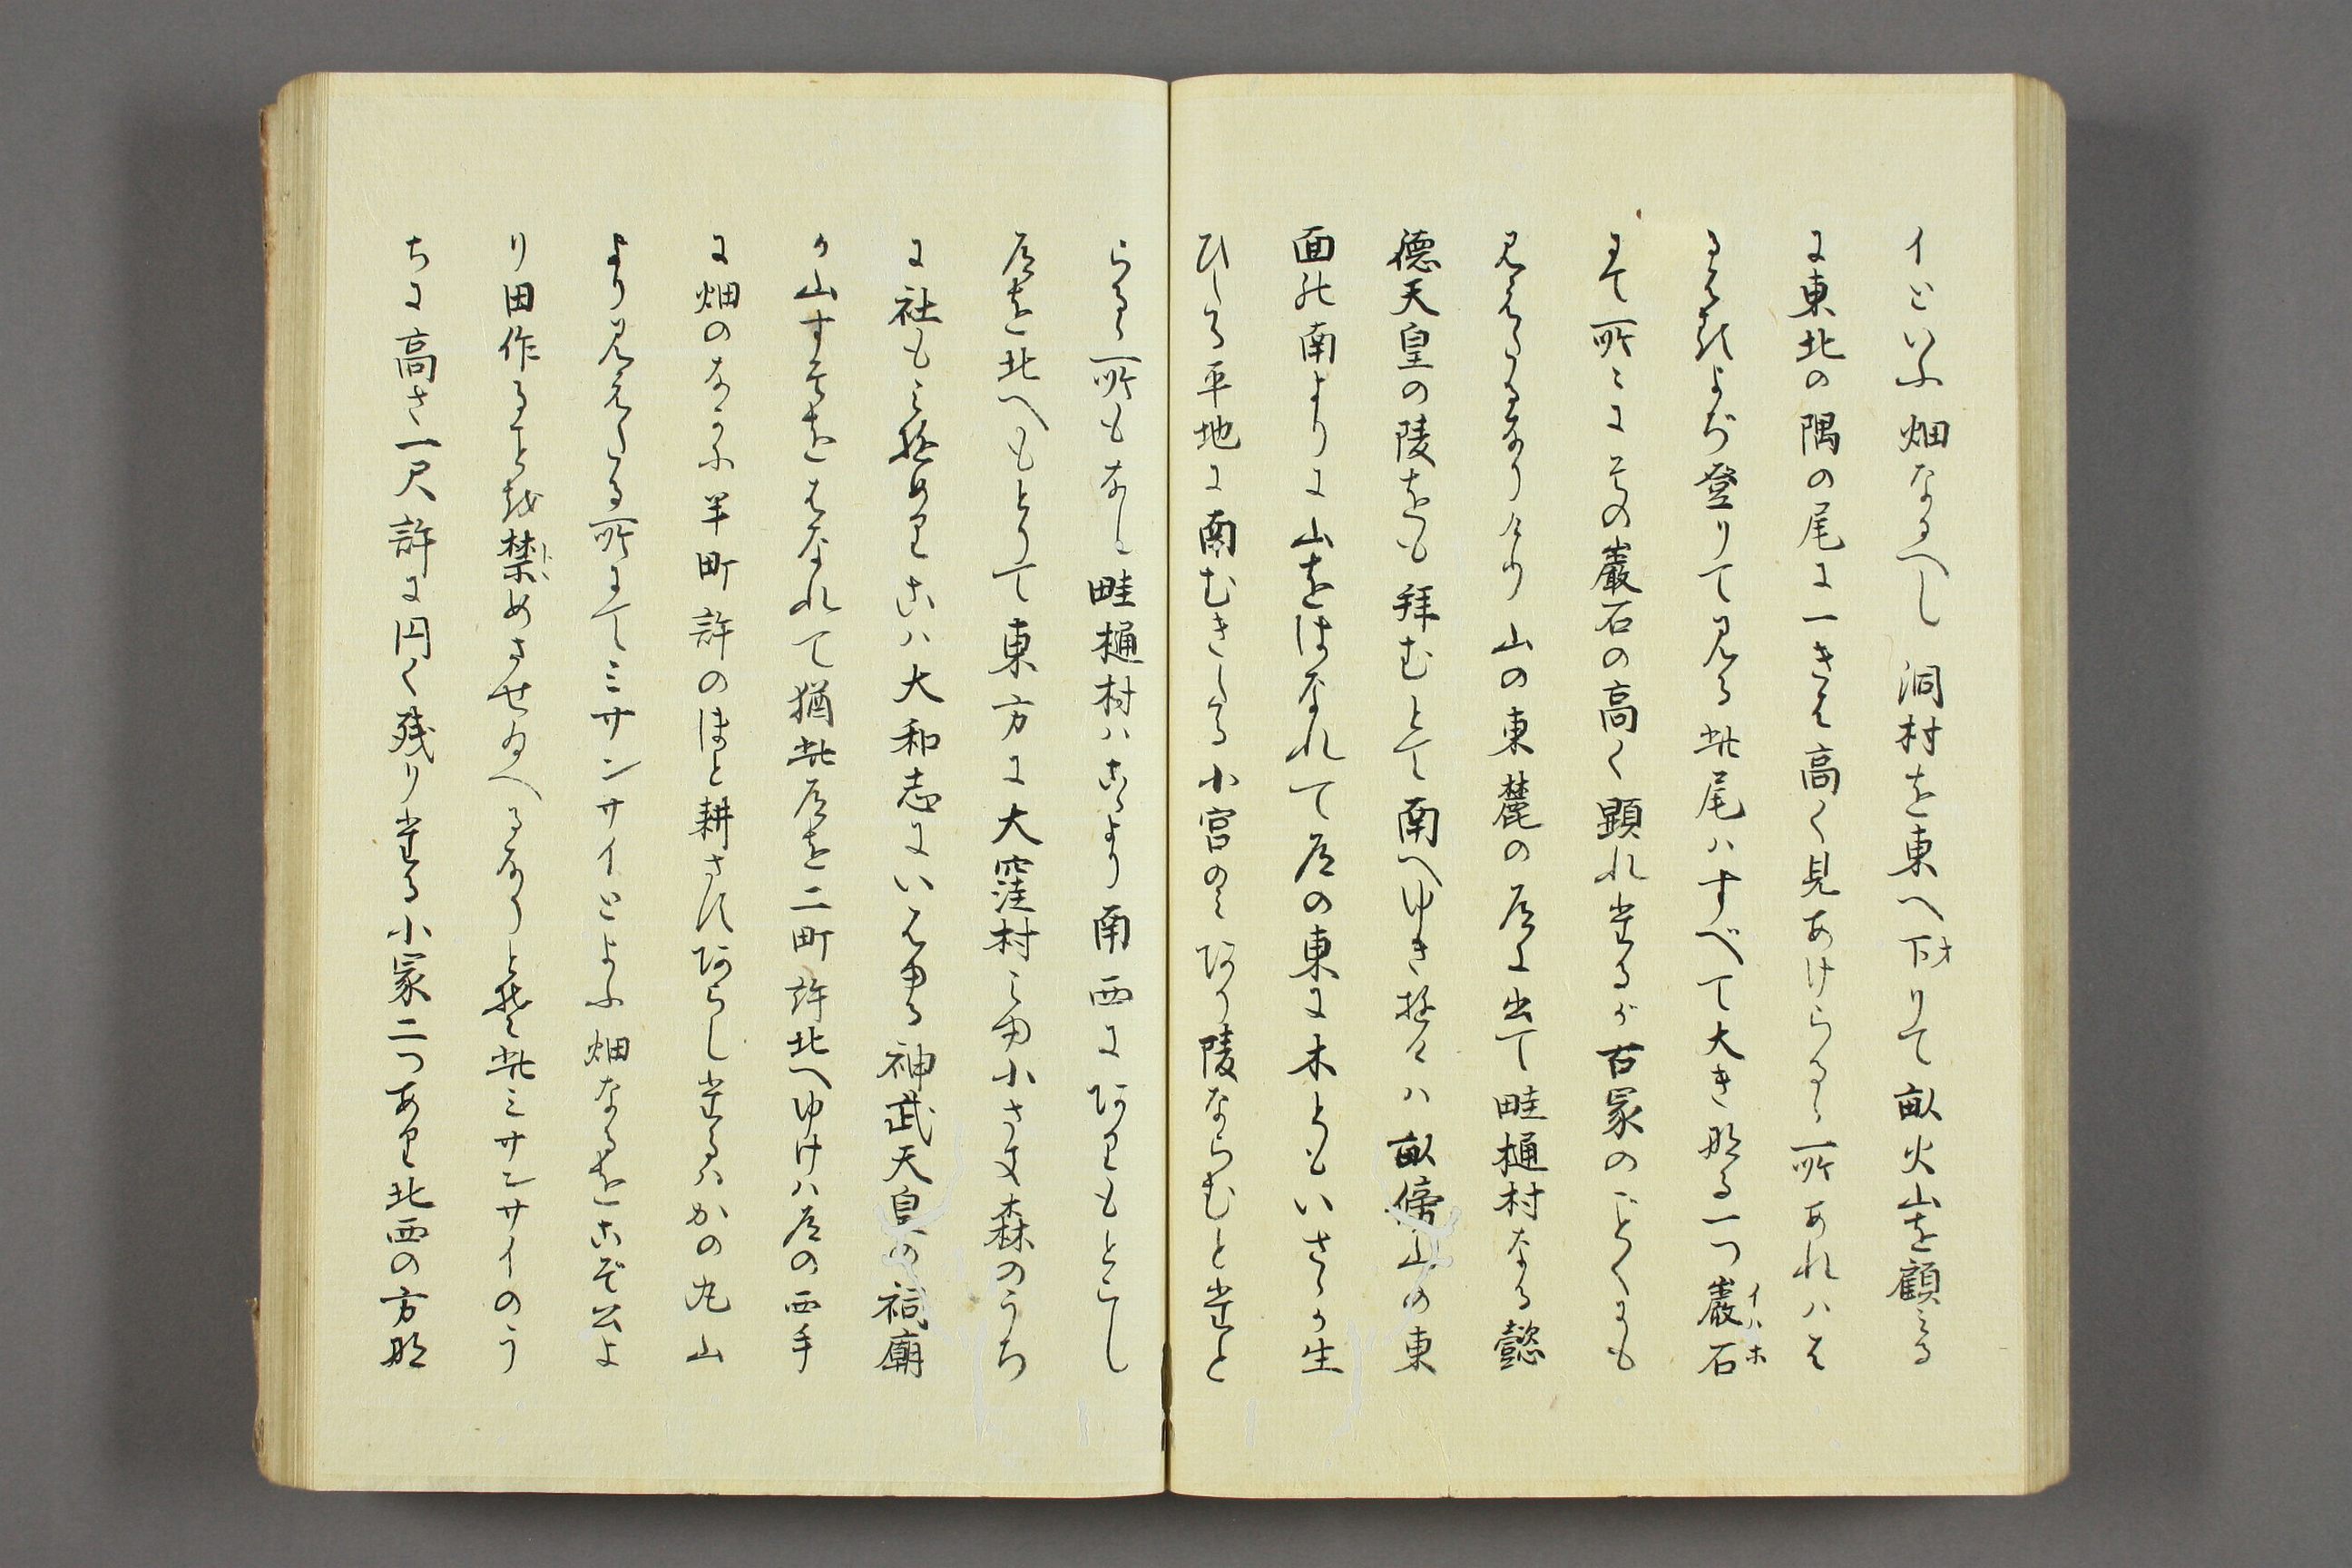 イといふ畑なるへし 洞村を東へ下りて畝火山を顧みる
に東北の隅の尾に一きは高く見あけらるゝ所あれハそ
よぢ登りて見る此尾ハすべて大き那る一つ巌石
まて所〻にその巌石の高く顕れ堂るが古冢のごとくにも
見えたるなりけり山の東麓の道に出て畦樋村なる懿
徳天皇の陵をも拝むとて南へゆき ハ畝傍山の東
面の南よりに山をはなれて道の東に木ともいさゝか生
ひたる平地に南むきたる小宮のミあり陵ならむと
らるゝ所もなし畦樋村ハこゝより南西にありもとこし
道を北へもとりて東方に大窪村 小さき森のうち
に社も こハ大和志にいはゆる神武天皇の祠廟
か山すそをはなれて猶此道を二町許北へゆけハ道の西手
に畑のなかに半町許のほと耕さすあらし堂るハかの丸山
より見えたる所にてミサンサイとよふ畑なるをこぞ公よ
り田作ること越禁めさせ給へるなりとそ此ミサンサイのう
ちに高さ一尺許に円く残り堂る小冢二つあり北西の方那